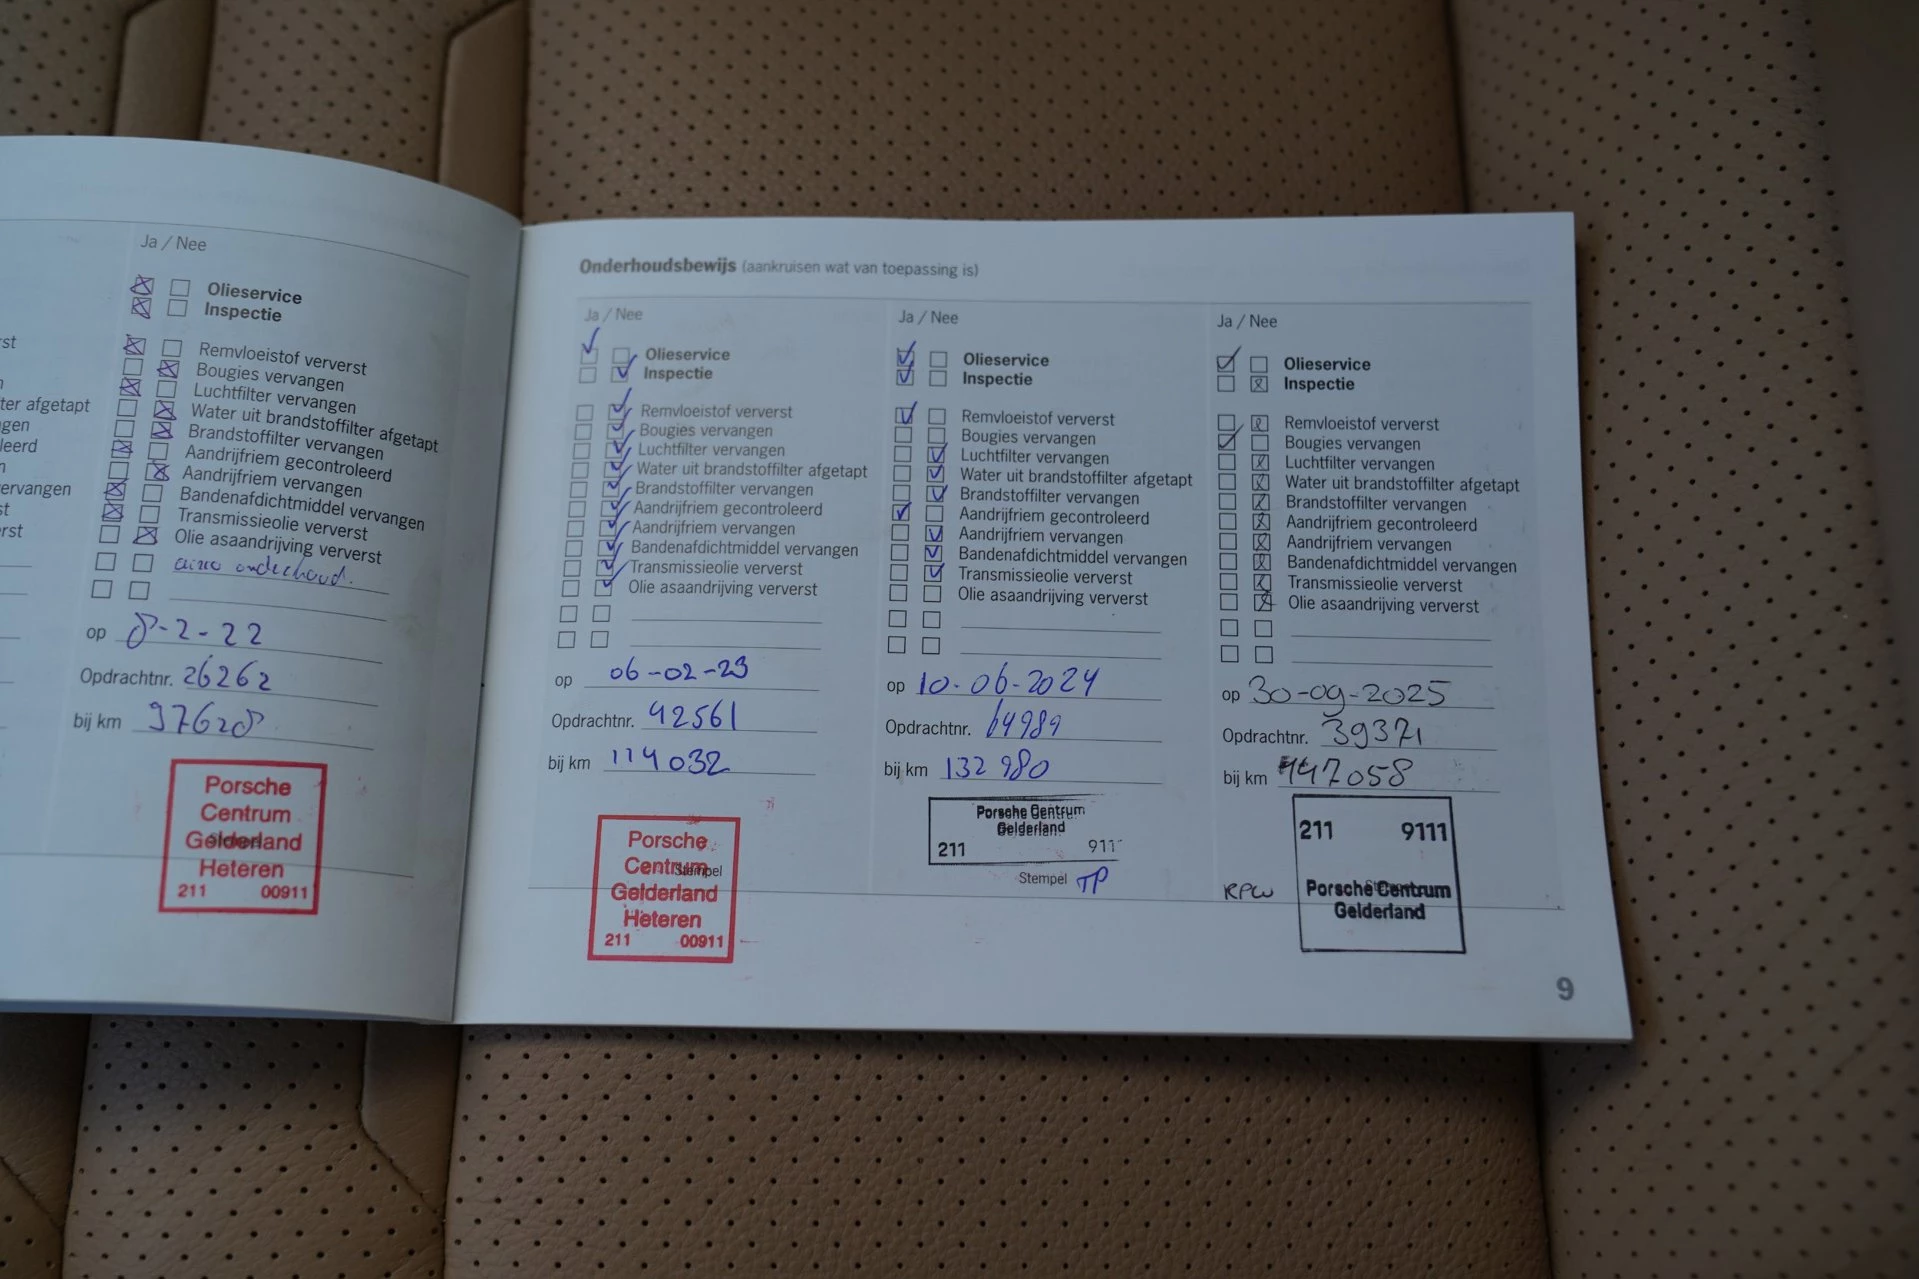 st
ter afgetapt
gen
leerd
n
ervangen
st
rst
Ja / Nee
Olieservice
Inspectie
Remvloeistof ververst
Bougies vervangen
Luchtfilter vervangen
Water uit brandstoffilter afgetapt
Brandstoffilter vervangen
Aandrijfriem gecontroleerd
Aandrijfriem vervangen
Bandenafdichtmiddel vervangen
Transmissieolie ververst
Olie asaandrijving ververst
airco onderhoud.
op 8-2-22
Opdrachtnr. 26262
bij km 97628
Porsche
Centrum
Gelderland
Heteren
211 00911
Onderhoudsbewijs (aankruisen wat van toepassing is)
Ja / Nee
Olieservice
Inspectie
Remvloeistof ververst
Bougies vervangen
Luchtfilter vervangen
Water uit brandstoffilter afgetapt
Brandstoffilter vervangen
Aandrijfriem gecontroleerd
Aandrijfriem vervangen
Bandenafdichtmiddel vervangen
Transmissieolie ververst
Olie asaandrijving ververst
op 06-02-23
Opdrachtnr. 42561
bij km 114032
Porsche
Centrum
Stempel
Gelderland
Heteren
211 00911
Ja / Nee
Olieservice
Inspectie
Remvloeistof ververst
Bougies vervangen
Luchtfilter vervangen
Water uit brandstoffilter afgetapt
Brandstoffilter vervangen
Aandrijfriem gecontroleerd
Aandrijfriem vervangen
Bandenafdichtmiddel vervangen
Transmissieolie ververst
Olie asaandrijving ververst
op 10-06-2024
Opdrachtnr. 64989
bij km 132980
Porsche Centrum
Gelderland
211 911
Stempel TP
Ja / Nee
Olieservice
Inspectie
Remvloeistof ververst
Bougies vervangen
Luchtfilter vervangen
Water uit brandstoffilter afgetapt
Brandstoffilter vervangen
Aandrijfriem gecontroleerd
Aandrijfriem vervangen
Bandenafdichtmiddel vervangen
Transmissieolie ververst
Olie asaandrijving ververst
op 30-09-2025
Opdrachtnr. 39371
bij km 147058
211 9111
RPW Porsche Centrum
Gelderland
9